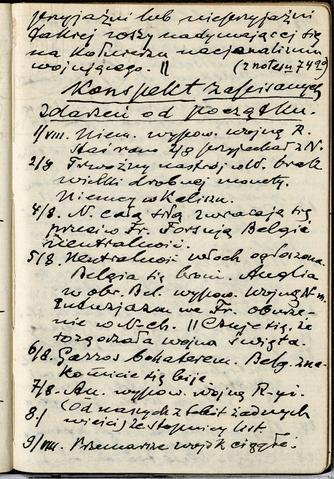 przyjaźni lub nieprzyjaźni
jakiej rosy nadymającej się
na kołnierzu nacjonalizmu
wojującego. ||
(z notesu 7499)
Konspekt zapisanych
zdarzeń od początku.
1/VIII. Niem. wypow. wojnę R.
Staś rano 2/8 przyjechał z N.
2/8 Trwożny nastrój w W. brak
wielki drobnej monety.
Niemcy w Kaliszu.
4/8. N. całą siłą zwracają się
przeciw Fr. Forsują Belgię
neutralność.
5/8 Neutralność Włoch ogłoszona.
Belgia się broni. Anglia
w obr. Bel. wypow. wojnę N-m.
Entuzjazm we Fr. oburze-
nie w N-ch. || Czuje się, że
rozgorzała wojna święta.
6/8. Garros bohaterem. Belg. zna-
komicie się biją.
7/8. Au. wypow. wojnę R-yi.
8/ (Od naszych z Łabit żadnych
wieści) Ze stopnicy list.
9/VIII. Przemarsze wojsk ciągłe.